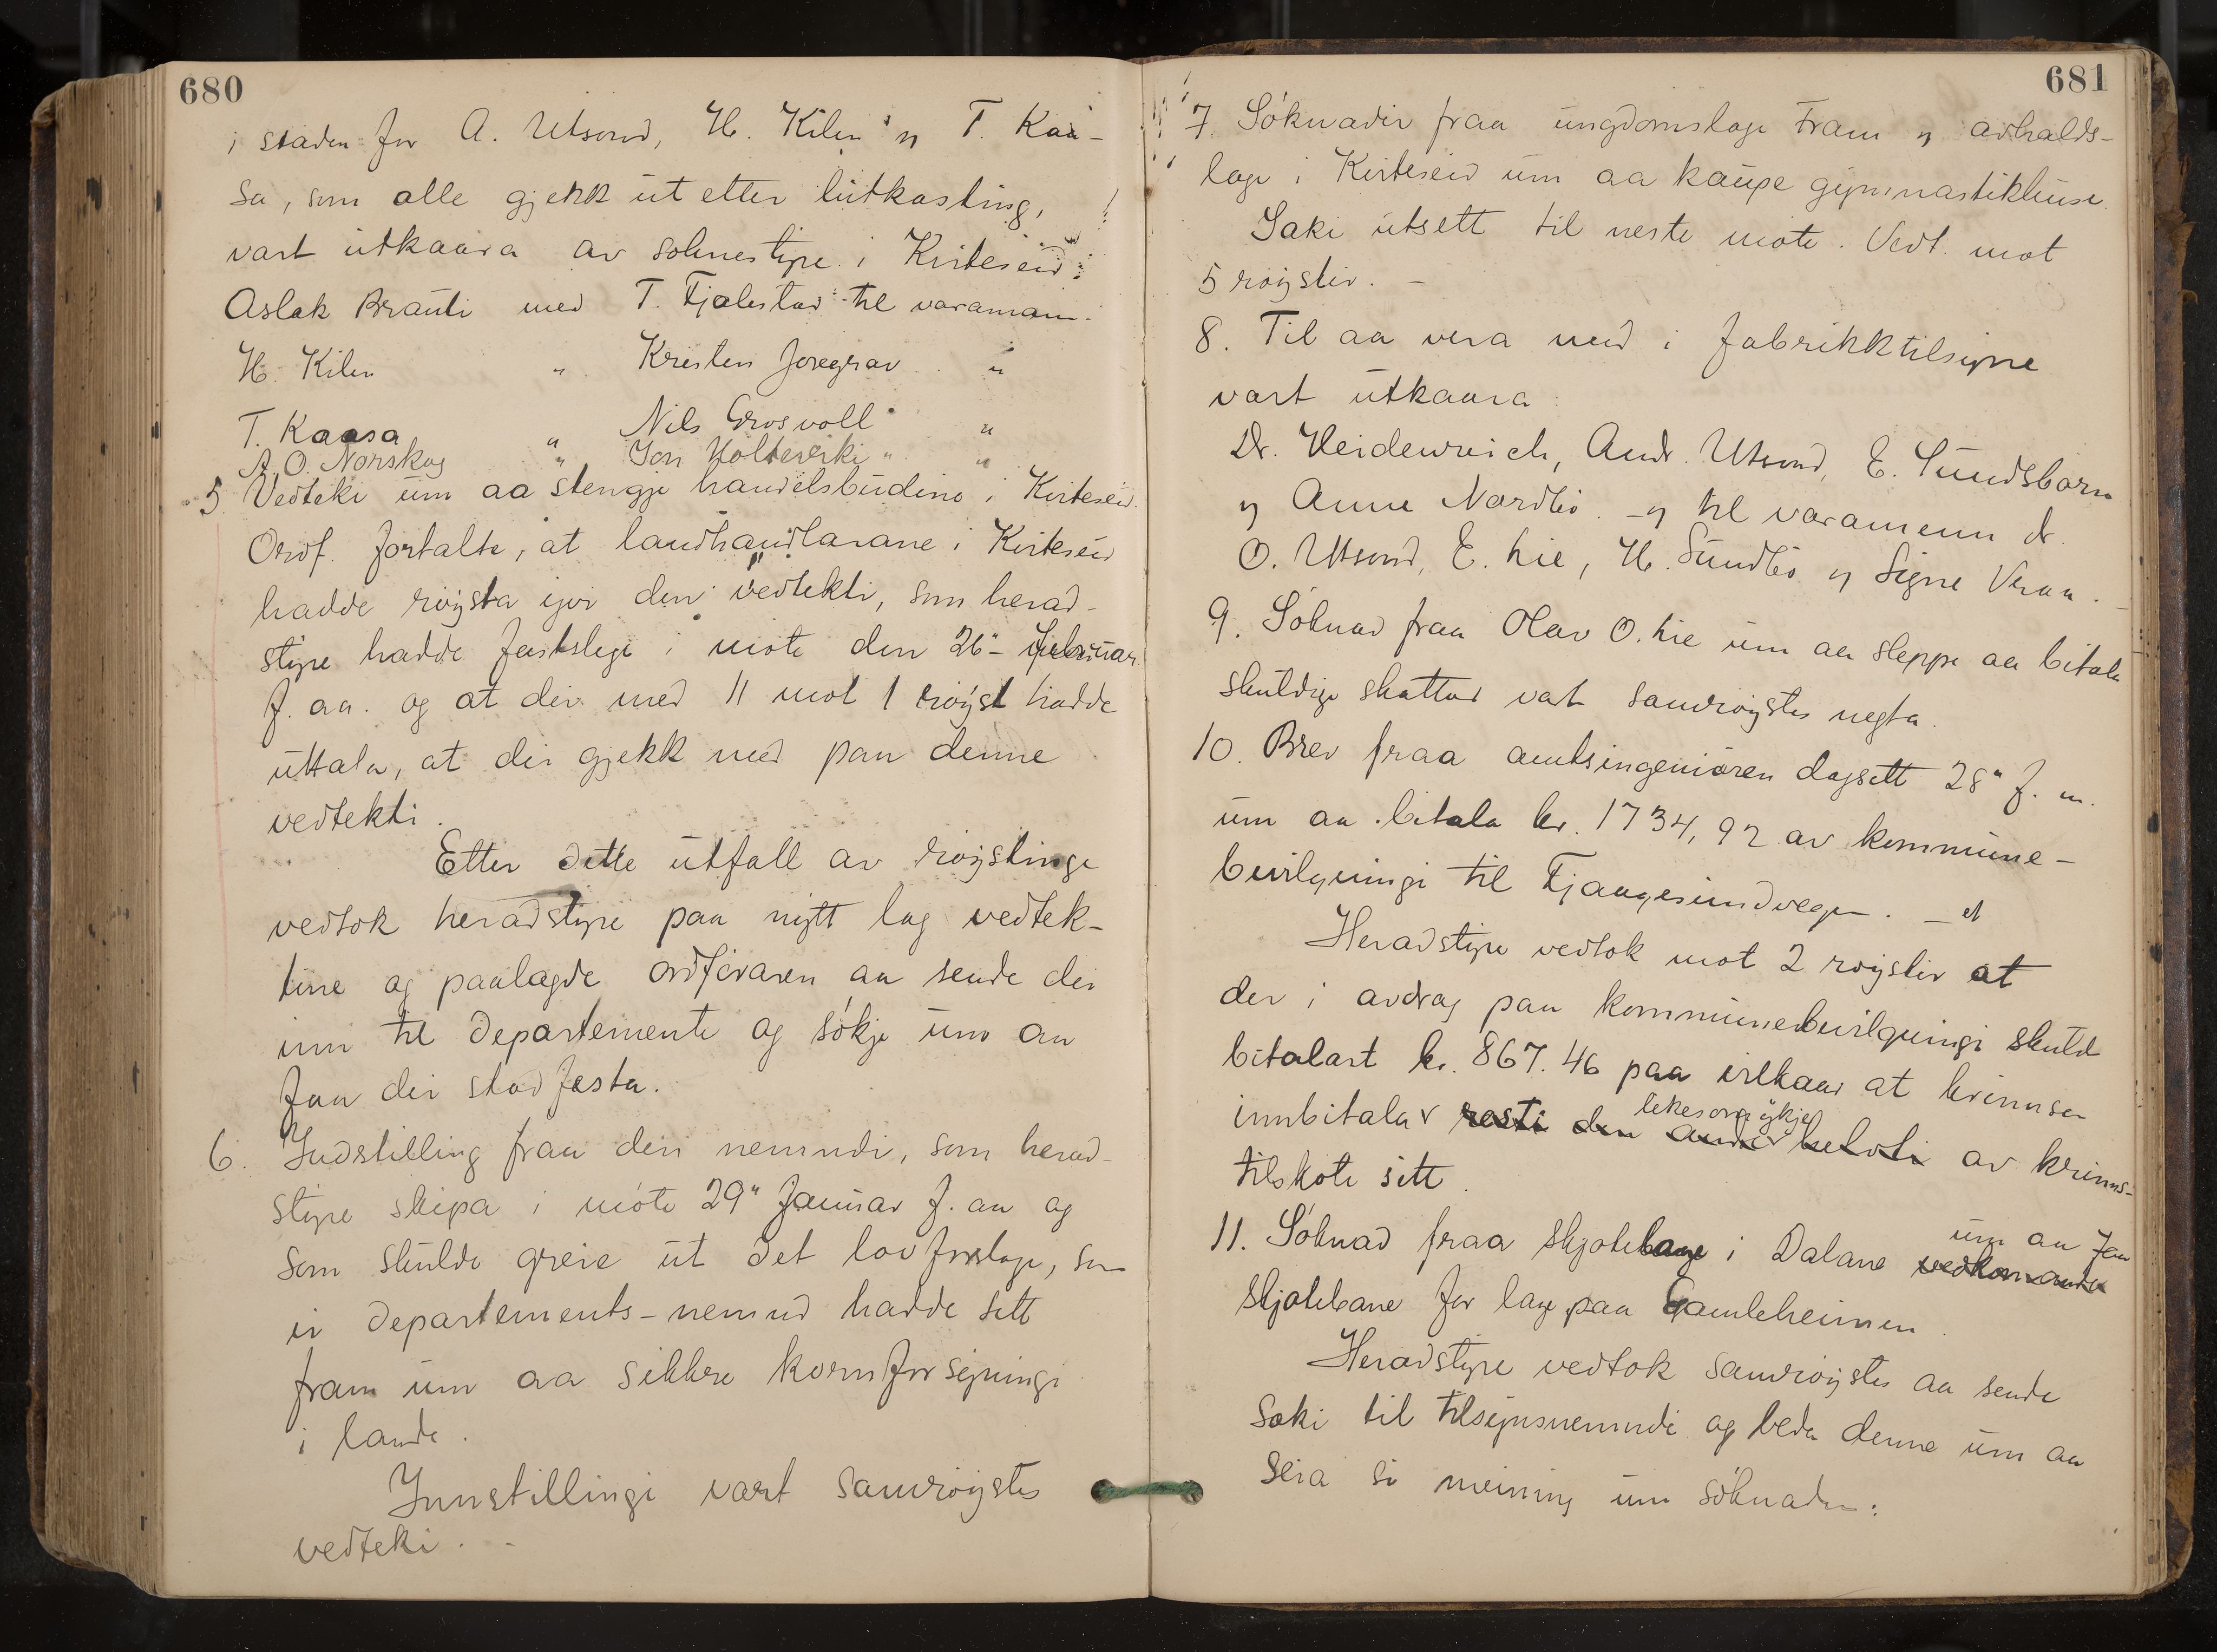 680
i staden for A. Utsond, H. Kilen og T. Kaa-
sa, som alle gjekk ut etter lutkasting,
vart utkaara av soknestyre i Kviteseid:
Aslak Brauti med T. Fjalestad til varamann.
H. Kilen " Kristen Joregrav "
T. Kaasa " Nils Grosvoll "
A. O. Norskog " Jon Holteviki " "
5 Vedteki um aa stengje handelsbudine i Kviteseid.
Ordf. fortalte, at landhandlarane i Kviteseid
hadde røysta yvi den vedtekti, som herad-
styre hadde fastslegi i møte den 26" februar
f. aa. og at dei med 11 mot 1 røyst hadde
uttala, at dei gjekk med paa denne
vedtekti.
Etter dette utfall av røystingi
vedtok heradstyre paa nytt lag vedtek-
tine og paalagde ordføraren aa sende dei
inn til Departemente og søkje um aa
faa dei stadfesta.
6. Indstilling fraa den nemndi, som herad-
styre skipa i møte 29" Januar f. aa og
som skulde greie ut det lovforslage, som
ei Departements-nemnd hadde sett
fram um aa sikkre kornforsyningi
i lande.
Innstillingi vart samrøystes
vedteki. -
681
7. Søknadir fraa ungdomslage Fram og avhalds-
lage i Kviteseid um aa kaupe gymnastikhuse.
Saki utsett til neste møte. Vedt. mot
5 røystir. -
8. Til aa vera med i fabrikktilsyne
vart utkaara:
Dr. Heidenreich, Andr. Utsond, E. Sundsbarm
og Anne Nordbø - og til varamenn dr.
O. Utsond, E. Lie, H. Sundbø og Signe Vraa. -
9. Søknad fraa Olav O. Lie um aa sleppe aa bitala
skuldige skattar vart samrøystes negta.
10. Brev fraa amtsingeniøren dagsett 28" f. m.
um aa bitala kr. 1734,92 av kommune-
bevilgningi til Fjaagesundvegen. - et
Heradstyre vedtok mot 2 røystir at
der i avdrag paa kommunebevilgningi skuld
bitalast kr. 867.46 paa vilkaar at krinnsen
innbitalar resti den andre helvti av krinns-
likesovøykje
tilskote sitt.
11. Søknad fraa skjotelage i Dalane vedkomande
um aa faa
skjotebane for lage paa Gamleheimen.
Heradstyre vedtok samrøystes aa sende
saki til tilsynsnemndi og beda denne um aa
seia si meining um søknaden: